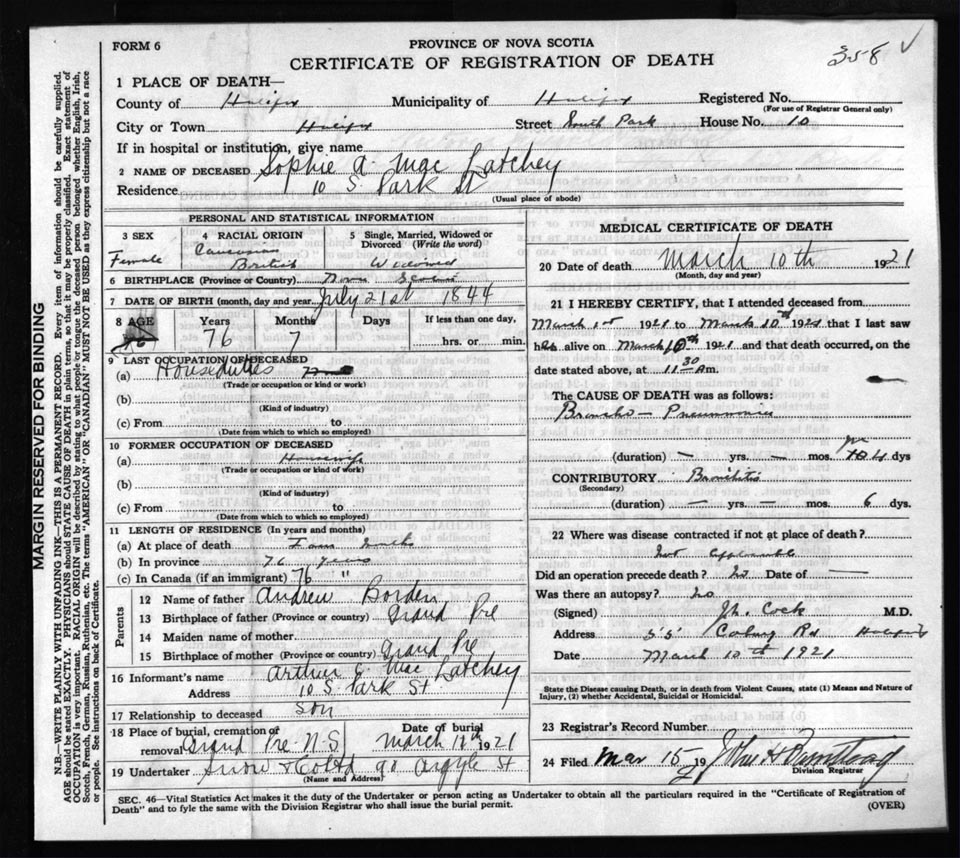 FORM 6
PROVINCE OF NOVA SCOTIA
CERTIFICATE OF REGISTRATION OF DEATH
358 ✓
1 PLACE OF DEATH—
County of Halifax Municipality of Halifax Registered No.
(For use of Registrar General only)
City or Town Halifax Street South Park House No. 10
If in hospital or institution, give name
2 NAME OF DECEASED Sophie A. Mac Latchey
Residence 10 S. Park St
(Usual place of abode)
PERSONAL AND STATISTICAL INFORMATION
3 SEX
Female
4 RACIAL ORIGIN
Caucasian
British
5 Single, Married, Widowed or Divorced (Write the word)
Widowed
6 BIRTHPLACE (Province or Country) Nova Scotia
7 DATE OF BIRTH (month, day and year) July 21st 1844
8 AGE Years Months Days If less than one day,
76 7 hrs. or min.
9 LAST OCCUPATION OF DECEASED
(a) Houseduties
(Trade or occupation or kind or work)
(b)
(Kind of industry)
(c) From to
(Date from which to which so employed)
10 FORMER OCCUPATION OF DECEASED
(a) Housewife
(Trade or occupation or kind of work)
(b)
(Kind of industry)
(c) From to
(Date from which to which so employed)
11 LENGTH OF RESIDENCE (In years and months)
(a) At place of death
(b) In province 76 years
(c) In Canada (if an immigrant) 76 "
Parents
12 Name of father Andrew Borden
13 Birthplace of father (Province or country) Grand Pre
14 Maiden name of mother
15 Birthplace of mother (Province or country) Grand Pre
16 Informant's name Arthur E. Mac Latchey
Address 10 S. Park St
17 Relationship to deceased Son
18 Place of burial, cremation or removal Grand Pre N.S
Date of burial March 1921
19 Undertaker Snow & Co Ltd 90 Argyle St
(Name and Address)
MEDICAL CERTIFICATE OF DEATH
20 Date of death March 10th 1921
(Month, day and year)
21 I HEREBY CERTIFY, that I attended deceased from
March 1st 1921 to March 10th 1921 that I last saw
her alive on March 10th 1921 and that death occurred, on the
date stated above, at 11 30 Am.
The CAUSE OF DEATH was as follows:
Broncho-Pneumonia
(duration) — yrs. — mos. 4 dys
CONTRIBUTORY Bronchitis
(Secondary)
(duration) — yrs. — mos. 6 dys.
22 Where was disease contracted if not at place of death?
not applicable
Did an operation precede death? No Date of —
Was there an autopsy? No
(Signed) Cock M.D.
Address 55 Coburg Rd Halifax
Date March 10th 1921
State the Disease causing Death, or in death from Violent Causes, state (1) Means and Nature of
Injury, (2) whether Accidental, Suicidal or Homicidal.
23 Registrar's Record Number
24 Filed Mar 15 19 John H
Division Registrar
SEC. 46—Vital Statistics Act makes it the duty of the Undertaker or person acting as Undertaker to obtain all the particulars required in the "Certificate of Registration of
Death" and to fyle the same with the Division Registrar who shall issue the burial permit.
(OVER)
MARGIN RESERVED FOR BINDING
N.B.—WRITE PLAINLY WITH UNFADING INK—THIS IS A PERMANENT RECORD. Every item of information should be carefully supplied.
AGE should be stated EXACTLY. PHYSICIANS should STATE CAUSE OF DEATH in plain terms, so that it may be properly classified. Exact statement of
OCCUPATION is very important. RACIAL ORIGIN will be described by stating to what people or tongue the deceased person belonged whether English, Irish,
Scotch, French, German, Russian, Ruthenian, etc. The terms "AMERICAN" OR "CANADIAN" MUST NOT BE USED as they express citizenship but not a race
or people. See instructions on back of Certificate.